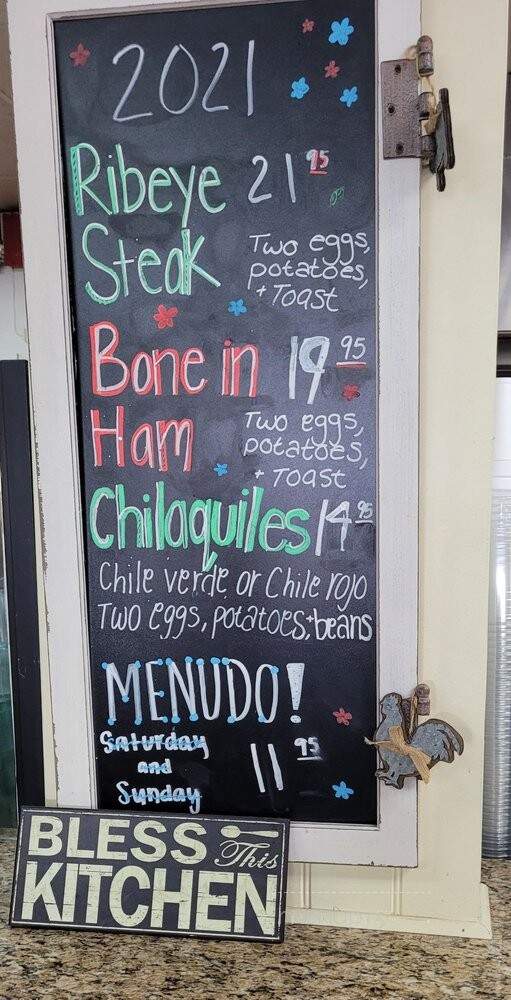 2021
Ribeye 21 95
Steak Two eggs,
potatoes,
+ Toast
Bone in 19 95
Ham Two eggs,
potatoes,
+ Toast
Chilaquiles 14 95
Chile verde or Chile rojo
Two eggs, potatoes,+beans
MENUDO!
Saturday
and
Sunday
11 95
BLESS This
KITCHEN